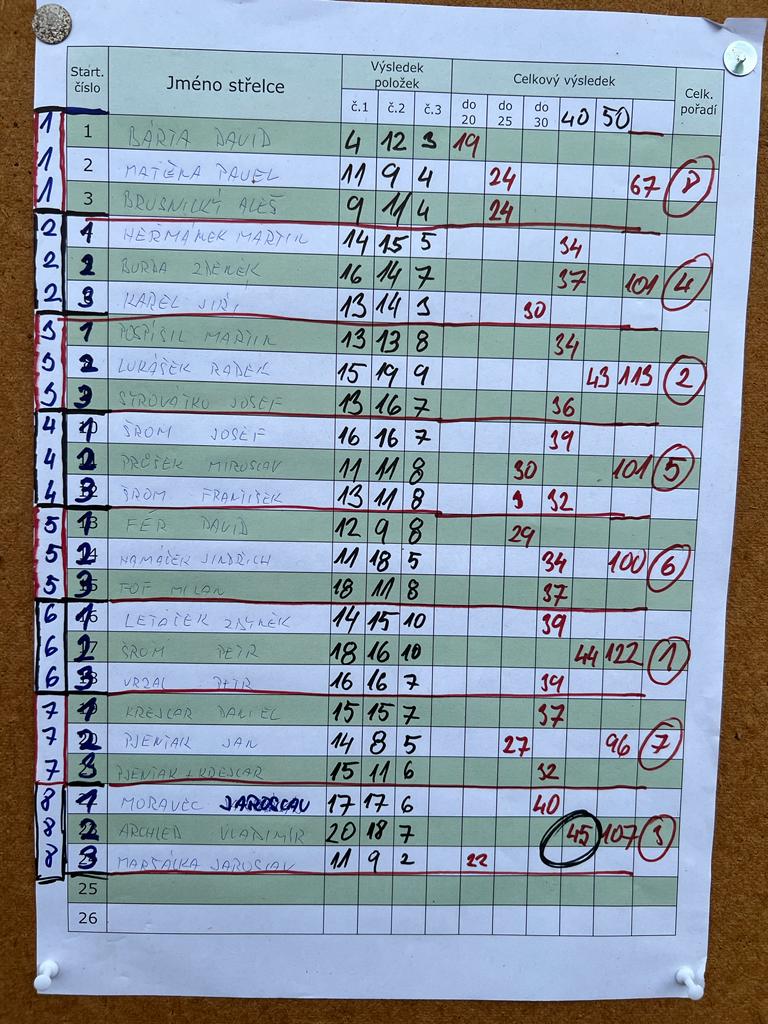 Start. číslo Jméno střelce Výsledek položek Celkový výsledek Celk. pořadí
č.1 č.2 č.3 do 20 do 25 do 30 40 50
1 1 BÁRTA DAVID 4 12 3 19
1 2 MATĚNA PAVEL 11 9 4 24 67 8
1 3 BRUSNICKÝ ALEŠ 9 11 4 24
2 1 HEŘMÁNEK MARTIN 14 15 5 34
2 2 BURDA ZDENĚK 16 14 7 37 101 4
2 3 KAREL JIŘÍ 13 14 3 30
3 1 POSPÍŠIL MARTIN 13 13 8 34
3 2 LUKÁŠEK RADEK 15 19 9 43 113 2
3 3 SYROVÁTKO JOSEF 13 16 7 36
4 1 ŠROM JOSEF 16 16 7 39
4 2 PRŮŠEK MIROSLAV 11 11 8 30 101 5
4 3 ŠROM FRANTIŠEK 13 11 8 32
5 1 FÉR DAVID 12 9 8 29
5 2 HAMÁČEK JINDŘICH 11 18 5 34 100 6
5 3 FOF MILAN 18 11 8 37
6 1 LETÁČEK ZBYNĚK 14 15 10 39
6 2 ŠROM PETR 18 16 10 44 122 1
6 3 VRZAL PETR 16 16 7 39
7 1 KREJCAR DANIEL 15 15 7 37
7 2 PJENTAK JAN 14 8 5 27 96 7
7 3 PJENTAK + KREJCAR 15 11 6 32
8 1 MORAVEC JAROSLAV 17 17 6 40
8 2 ARCHLEB VLADIMÍR 20 18 7 45 107 3
8 3 MARŠÁLKA JAROSLAV 11 9 2 22
25
26